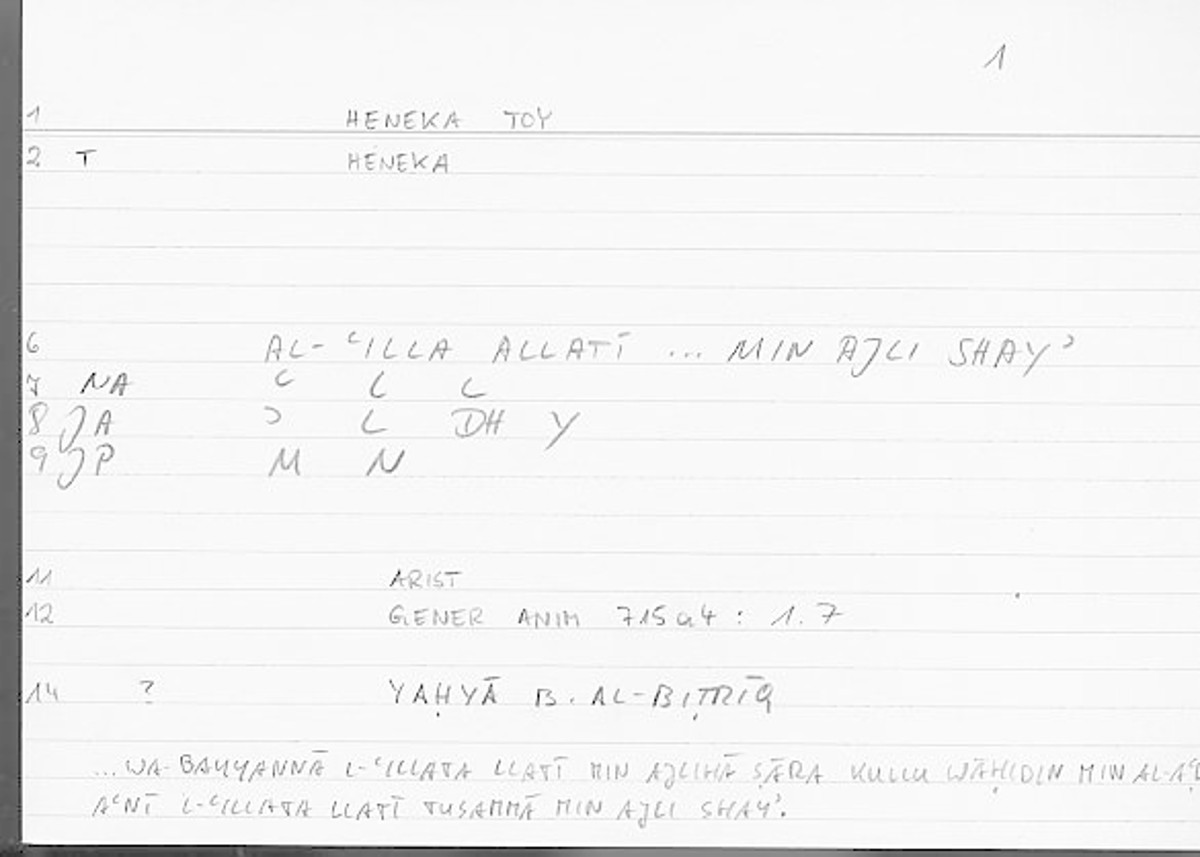 1
1 HENEKA TOY
2 T HENEKA
6 AL-ʿILLA ALLATĪ ... MIN AJLI SHAYʾ
7 NA ʿ L L
8 JA ʾ L DH Y
9 JP M N
11 ARIST
12 GENER ANIM 715a4 : 1.7
14 ? YAḤYĀ B. AL-BIṬRĪQ
...WA-BAYYANNĀ L-ʿILLATA LLATĪ MIN AJLIHĀ ṢĀRA KULLU WĀḤIDIN MIN
AʿNĪ L-ʿILLATA LLATĪ TUSAMMĀ MIN AJLI SHAYʾ.